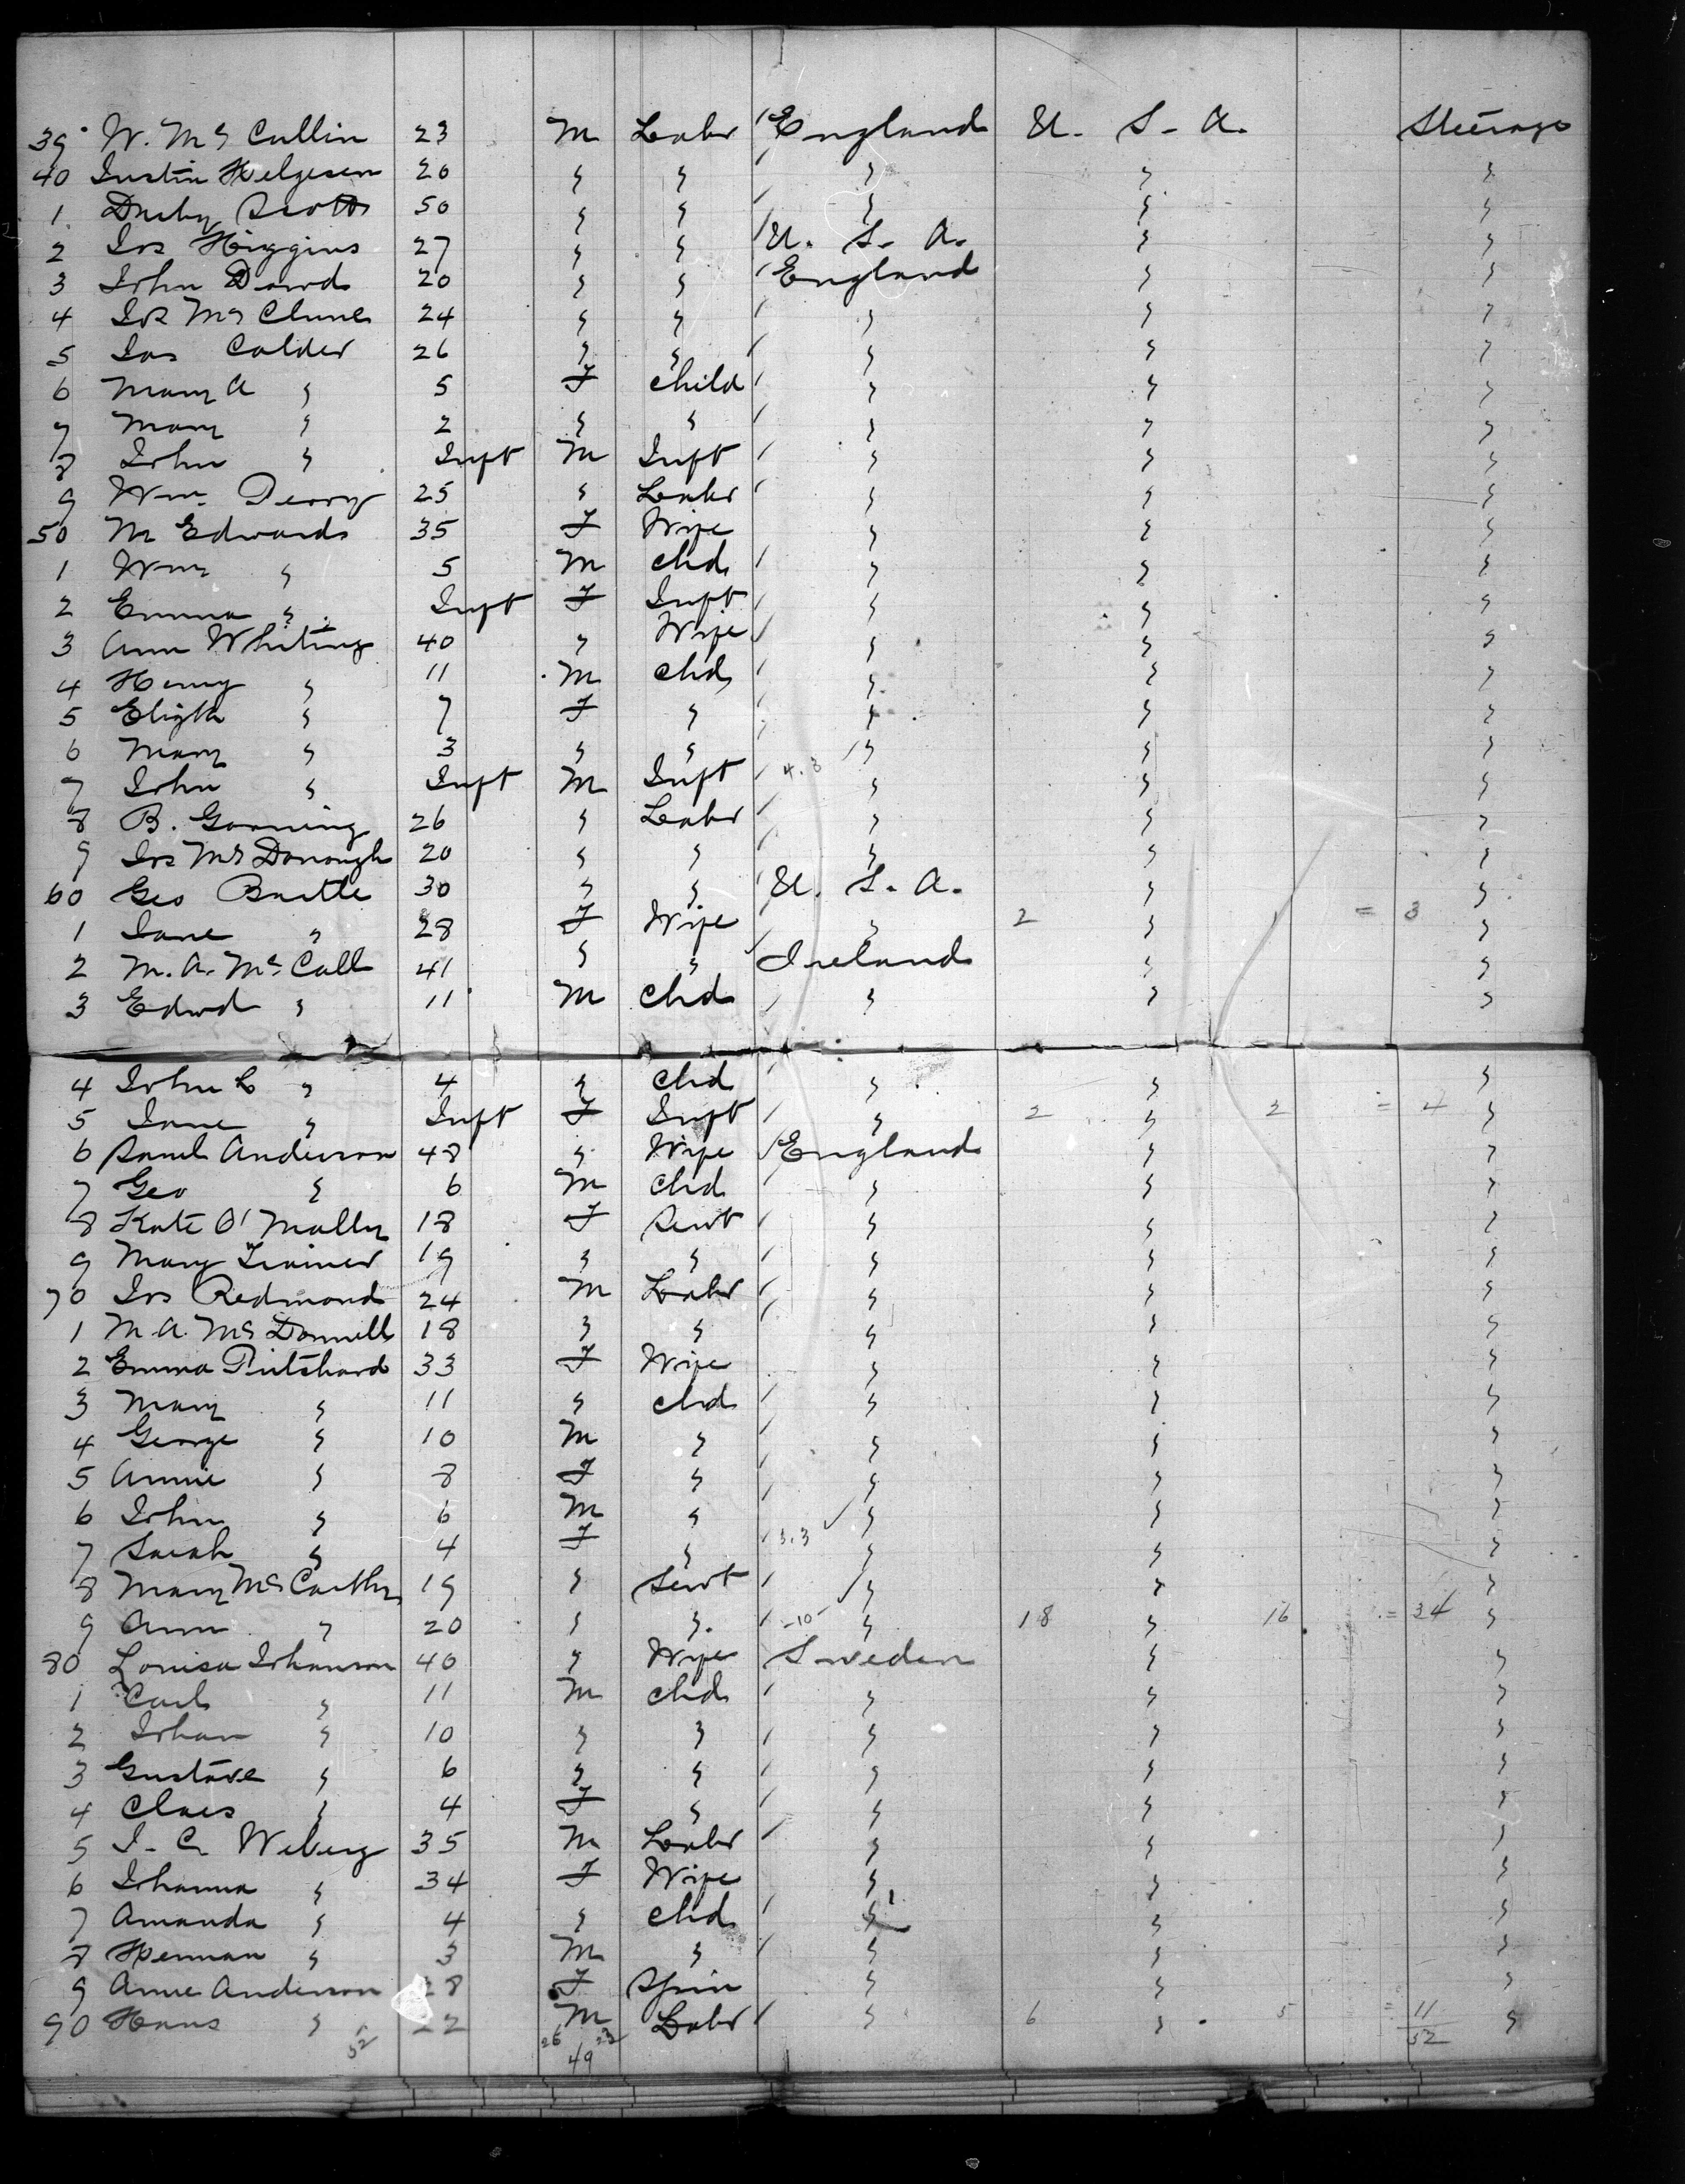 39 W. Mc Cullin 23 M Labr England U. S. A. Steerage
40 Justin Helgesen 26 " " " " "
1 Darby Scott 50 " " " " "
2 Jos Higgins 27 " " U. S. A. " "
3 John Dowd 20 " " England " "
4 Jos Mc Clune 24 " " " " "
5 Jas Calder 26 " " " " "
6 Mary A " 5 F Child " " "
7 Mary " 2 " " " " "
8 John " Inft M Inft " " "
9 Wm Perry 25 " Labr " " "
50 M Edwards 35 F Wife " " "
1 Wm " 5 M Chd " " "
2 Emma " Inft F Inft " " "
3 Ann Whiting 40 " Wife " " "
4 Henry " 11 M Chd " " "
5 Elizth " 7 F " " " "
6 Mary " 3 " " " " "
7 John " Inft M Inft 4.3 " " "
8 B. Gorning 26 " Labr " " "
9 Jos Mc Donough 20 " " " " "
60 Geo Buttle 30 " " U. S. A. " "
1 Jane " 28 F Wife " 2 " 1 = 3 "
2 M. A. Mc Call 41 " " Ireland " "
3 Edwd " 11 M Chd " " "
4 John L " 4 " Chd " " "
5 Jane " Inft F Inft " 2 " 2 = 4 "
6 Saml Anderson 48 " Wife England " "
7 Geo " 6 M Chd " " "
8 Kate O'Mally 18 F Servt " " "
9 Mary Trainer 19 " " " " "
70 Jos Redmond 24 M Labr " " "
1 M. A. Mc Donnell 18 " " " " "
2 Emma Pritchard 33 F Wife " " "
3 Mary " 11 " Chd " " "
4 George " 10 M " " " "
5 Annie " 8 F " " " "
6 John " 6 M " " " "
7 Sarah " 4 F " 3.3 " " "
8 Mary Mc Carthy 19 " Servt " " "
9 Ann " 20 " " -10- " 18 " 16 = 34 "
80 Louisa Johanson 40 " Wife Sweden " "
1 Carl " 11 M Chd " " "
2 Johan " 10 " " " " "
3 Gustave " 6 " " " " "
4 Claes " 4 F " " " "
5 J. C. Weberg 35 M Labr " " "
6 Johanna " 34 F Wife " " "
7 Amanda " 4 " Chd " " "
8 Herman " 3 M " " " "
9 Anne Anderson 28 F Spin " " "
90 Hans " 22 M Labr " 6 " 5 = 11 "
52 26 23 52
49